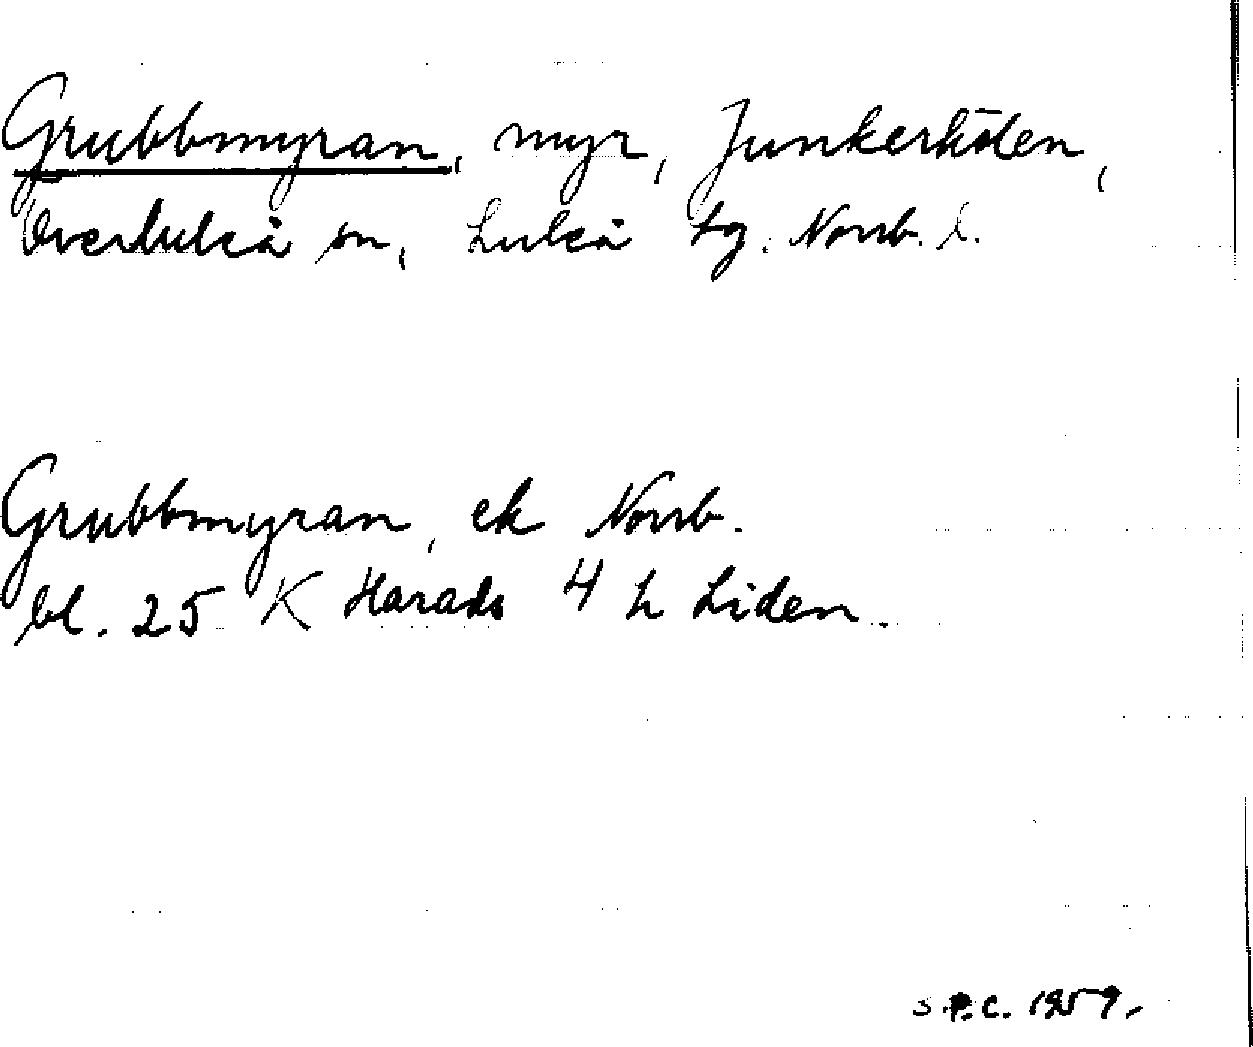 Grubbmyran, myr, Junkerhöden,
Överluleå sn, Luleå tg. Norrb. l.
Grubbmyran, ek Norrb.
bl. 25 K Harads 4 h Liden.
S.P.C. 1959.